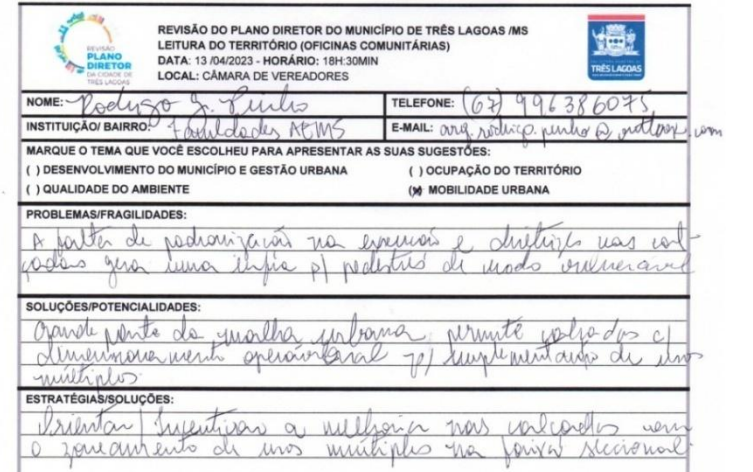 REVISÃO
PLANO
DIRETOR
DA CIDADE DE
TRÊS LAGOAS
REVISÃO DO PLANO DIRETOR DO MUNICÍPIO DE TRÊS LAGOAS /MS
LEITURA DO TERRITÓRIO (OFICINAS COMUNITÁRIAS)
DATA: 13 /04/2023 - HORÁRIO: 18H:30MIN
LOCAL: CÂMARA DE VEREADORES
TRÊS LAGOAS
NOME: Rodrigo G. Pinho
TELEFONE: (67) 996386075
INSTITUIÇÃO/ BAIRRO: Faculdades AEMS
E-MAIL: arq.rodrigo.pinho@
MARQUE O TEMA QUE VOCÊ ESCOLHEU PARA APRESENTAR AS SUAS SUGESTÕES:
( ) DESENVOLVIMENTO DO MUNICÍPIO E GESTÃO URBANA
( ) OCUPAÇÃO DO TERRITÓRIO
( ) QUALIDADE DO AMBIENTE
(x) MOBILIDADE URBANA
PROBLEMAS/FRAGILIDADES:
A falta de padronização na e diretrizes nas cal
çadas gera uma p/ pedestres de modo vulnerável
SOLUÇÕES/POTENCIALIDADES:
Grande parte da malha urbana permite calçadas c/
dimensionamento operacional p/ implementação de usos
múltiplos.
ESTRATÉGIAS/SOLUÇÕES:
Orientar/ Incentivar a melhoria nas calçadas com
o zoneamento de usos múltiplos na faixa seccional.